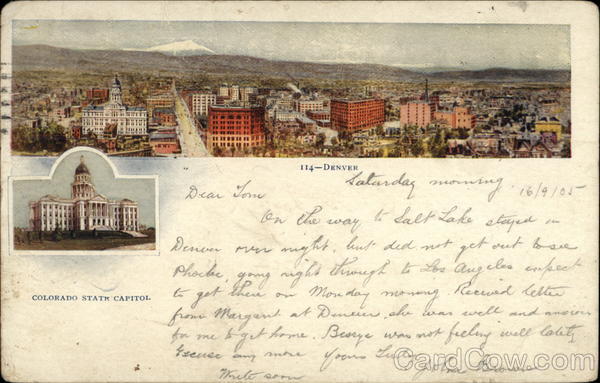 114—DENVER
COLORADO STATE CAPITOL
Saturday morning 16/9/05
Dear Tom
On the way to Salt Lake stayed in
Denver over night, but did not get out to see
Phoebe, going right through to Los Angeles expect
to get there on Monday morning. Recieved letter
from Margaret at Denver, she was well and anxious
for me to get home. Bessye was not feeling well lately
Excuse any more Yours Truly
John Brown
Write soon
CardCow.com